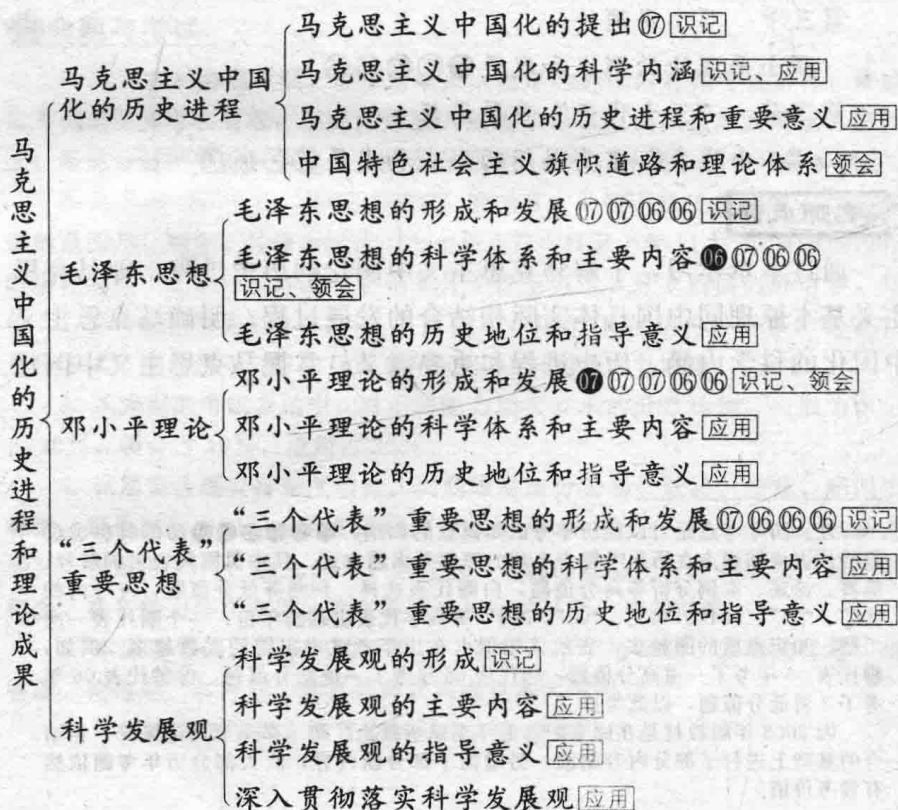 马克思主义中国化的历史进程和理论成果
马克思主义中国
化的历史进程
马克思主义中国化的提出⑦识记
马克思主义中国化的科学内涵识记、应用
马克思主义中国化的历史进程和重要意义应用
中国特色社会主义旗帜道路和理论体系领会
毛泽东思想
毛泽东思想的形成和发展07 07 06 06 识记
毛泽东思想的科学体系和主要内容06 07 06 06
识记、领会
毛泽东思想的历史地位和指导意义应用
邓小平理论
邓小平理论的形成和发展07 07 07 06 06 识记、领会
邓小平理论的科学体系和主要内容应用
邓小平理论的历史地位和指导意义应用
“三个代表”
重要思想
“三个代表”重要思想的形成和发展07 06 06 06 识记
“三个代表”重要思想的科学体系和主要内容应用
“三个代表”重要思想的历史地位和指导意义应用
科学发展观
科学发展观的形成识记
科学发展观的主要内容应用
科学发展观的指导意义应用
深入贯彻落实科学发展观应用